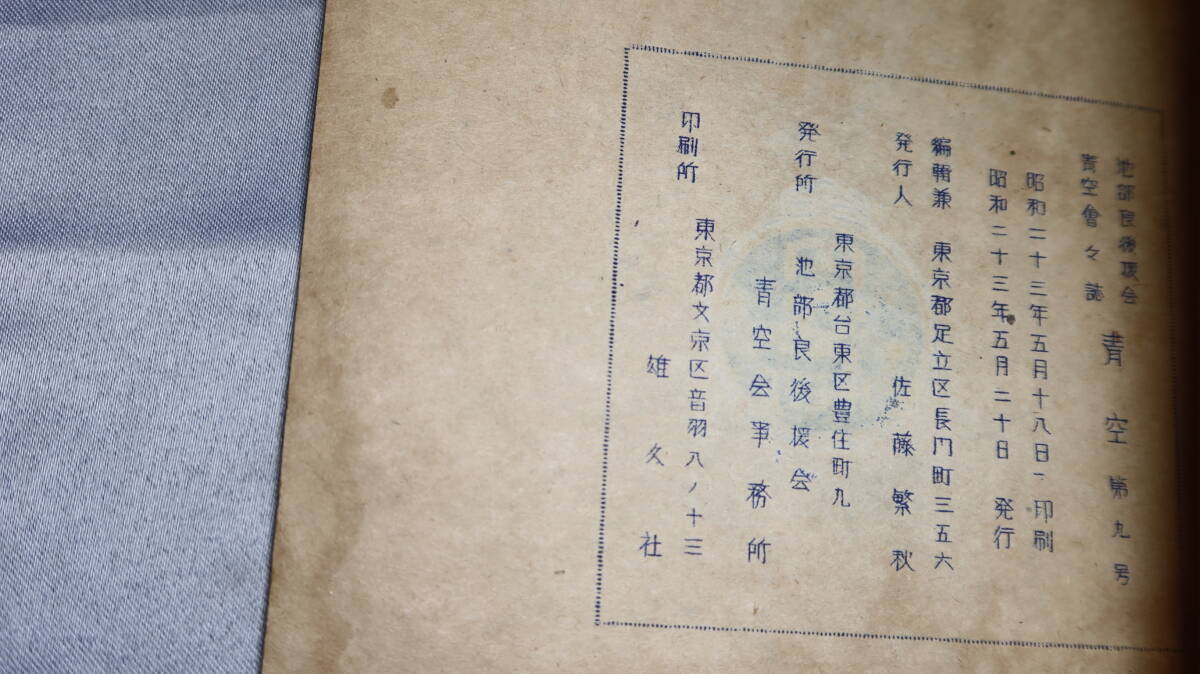 池部良後援会
青空會々誌 青空 第九号
昭和二十三年五月十八日 印刷
昭和二十三年五月二十日 発行
編輯兼 東京都足立区長門町三五六
発行人 佐藤繁秋
東京都台東区豊住町九
発行所 池部良後援会
青空会事務所
東京都文京区音羽八ノ十三
印刷所 雄文社